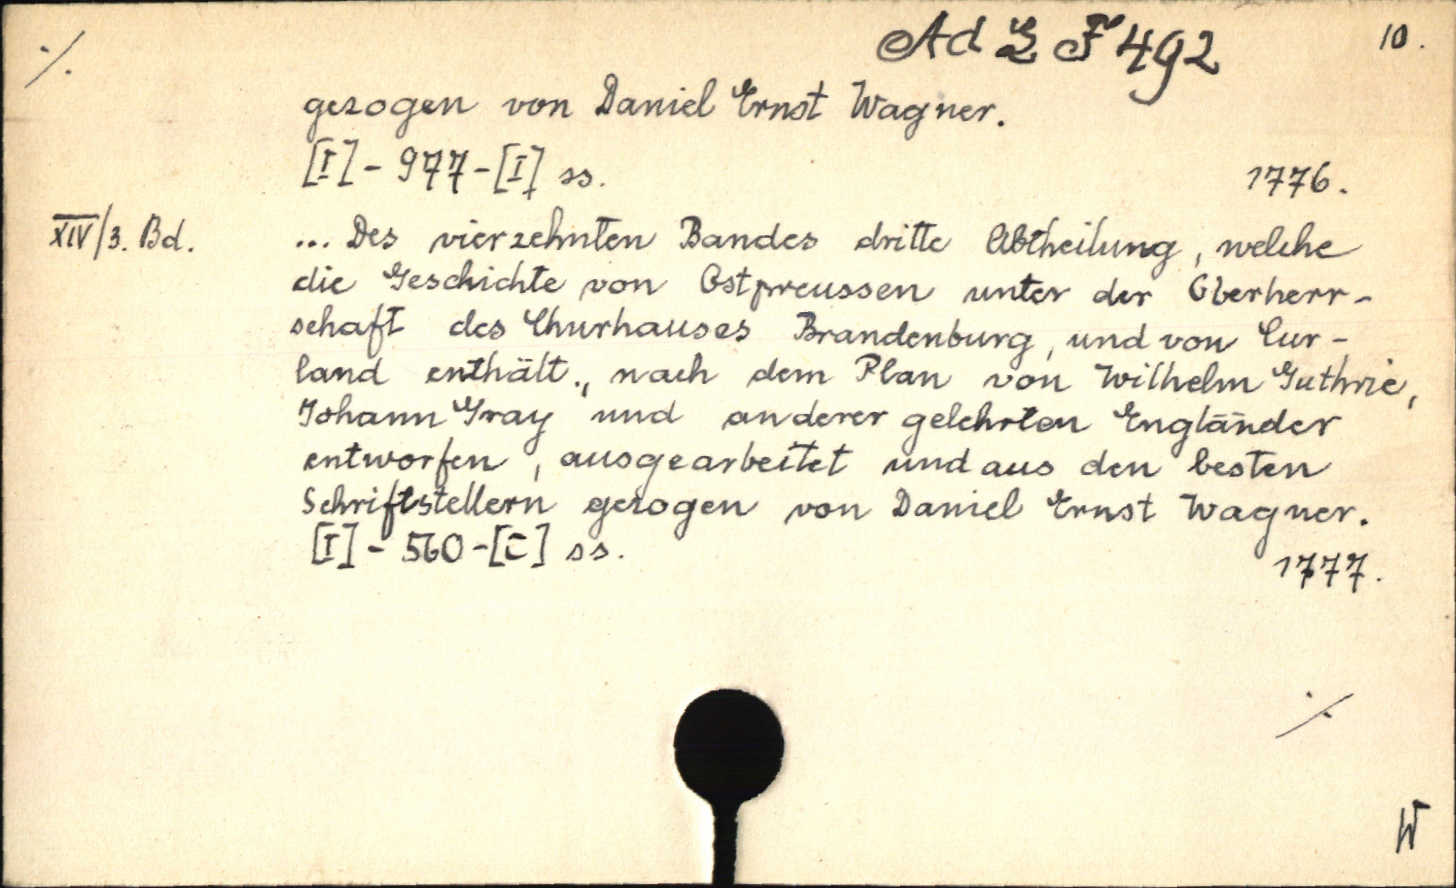 Ad L F 492
10.
./.
gezogen von Daniel Ernst Wagner.
[I] - 977 - [I] ss.
1776.
XIV/3. Bd.
... Des vierzehnten Bandes dritte Abtheilung, welche
die Geschichte von Ostpreussen unter der Oberherr-
schaft des Churhauses Brandenburg, und von Cur-
land enthält., nach dem Plan von Wilhelm Guthrie,
Johann Gray und anderer gelehrten Engländer
entworfen, ausgearbeitet und aus den besten
Schriftstellern gezogen von Daniel Ernst Wagner.
[I] - 560 - [C] ss.
1777.
./.
W